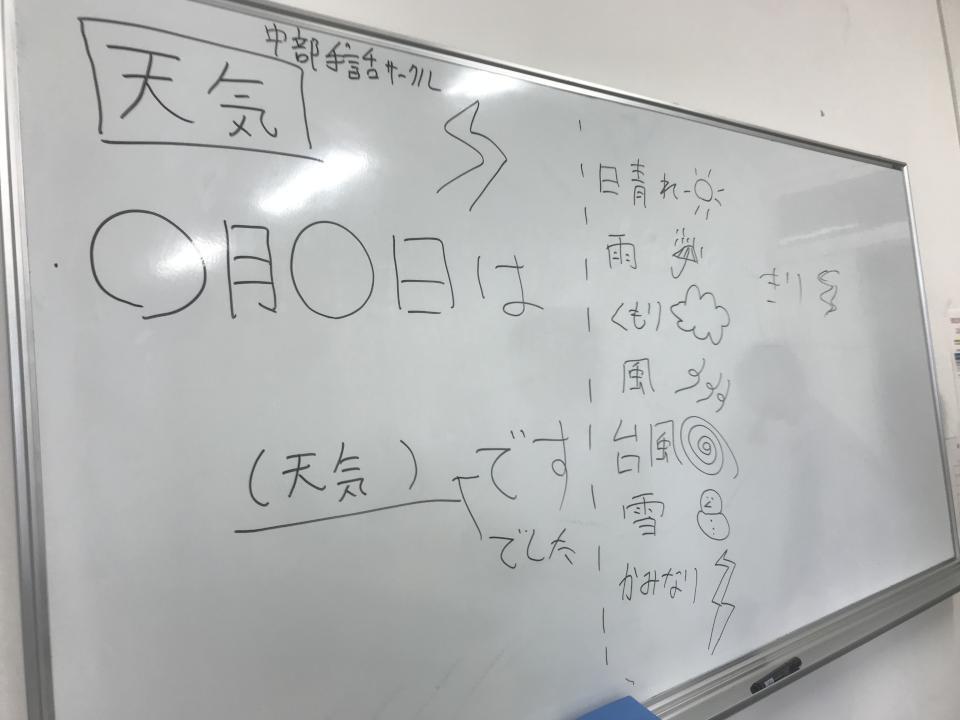 中部手話サークル
天気
〇月〇日は
(天気)です
でした
晴れ
雨
くもり
風
台風
雪
かみなり
ぎり